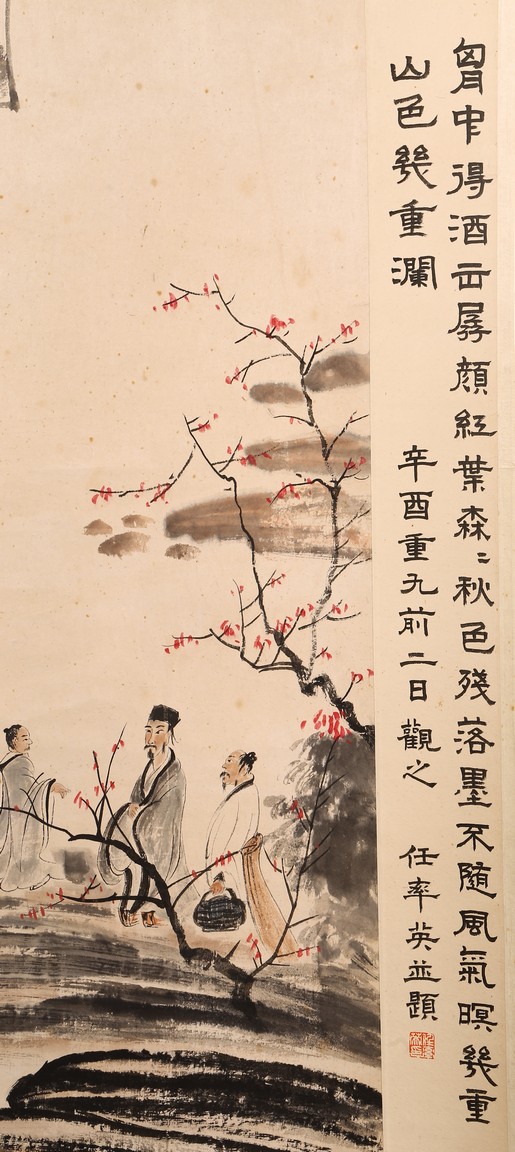 胷中得酒出孱顔紅葉森〻秋色殘落墨不隨風氣暝幾重
山色幾重瀾
辛酉重九前二日觀之 任率英並題